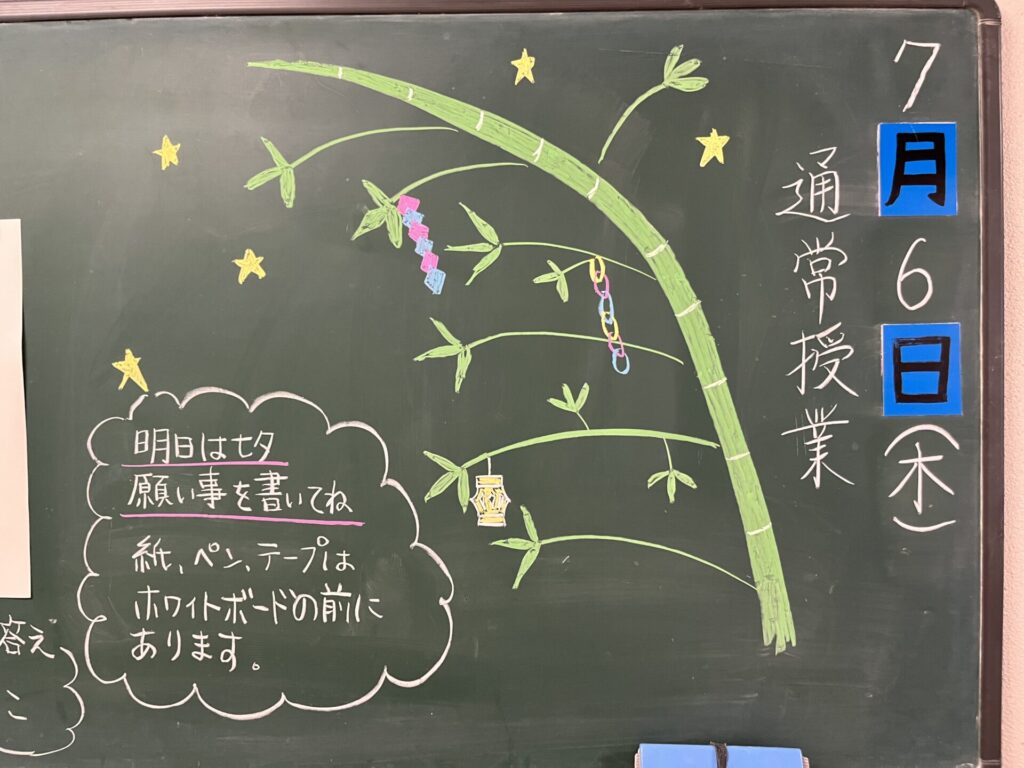 7月6日(木)
通常授業
明日は七夕
願い事を書いてね
紙、ペン、テープは
ホワイトボードの前に
あります。
答え
こ